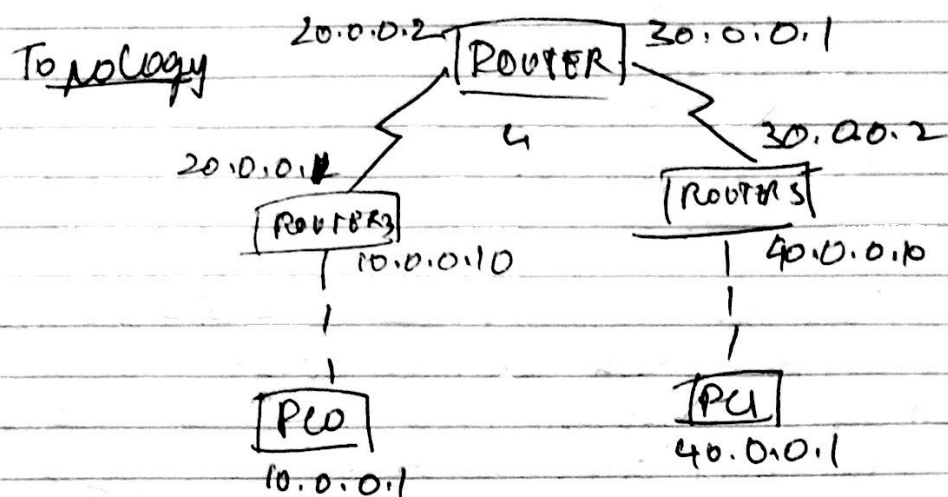 Topology
20.0.0.2 ROUTER 30.0.0.1
4
20.0.0.1 30.0.0.2
ROUTER3 ROUTER5
10.0.0.10 40.0.0.10
PC0 PC1
10.0.0.1 40.0.0.1